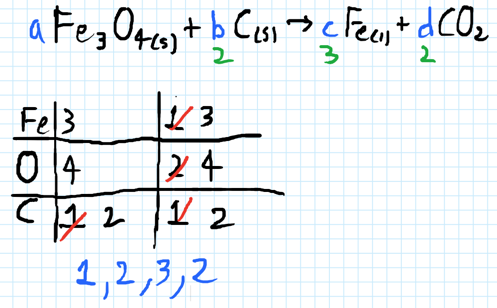 aFe₃O₄₍ₛ₎ + bC₍ₛ₎ → cFe₍ₗ₎ + dCO₂
2 3 2
Fe 3 1 3
O 4 2 4
C 1 2 1 2
1, 2, 3, 2